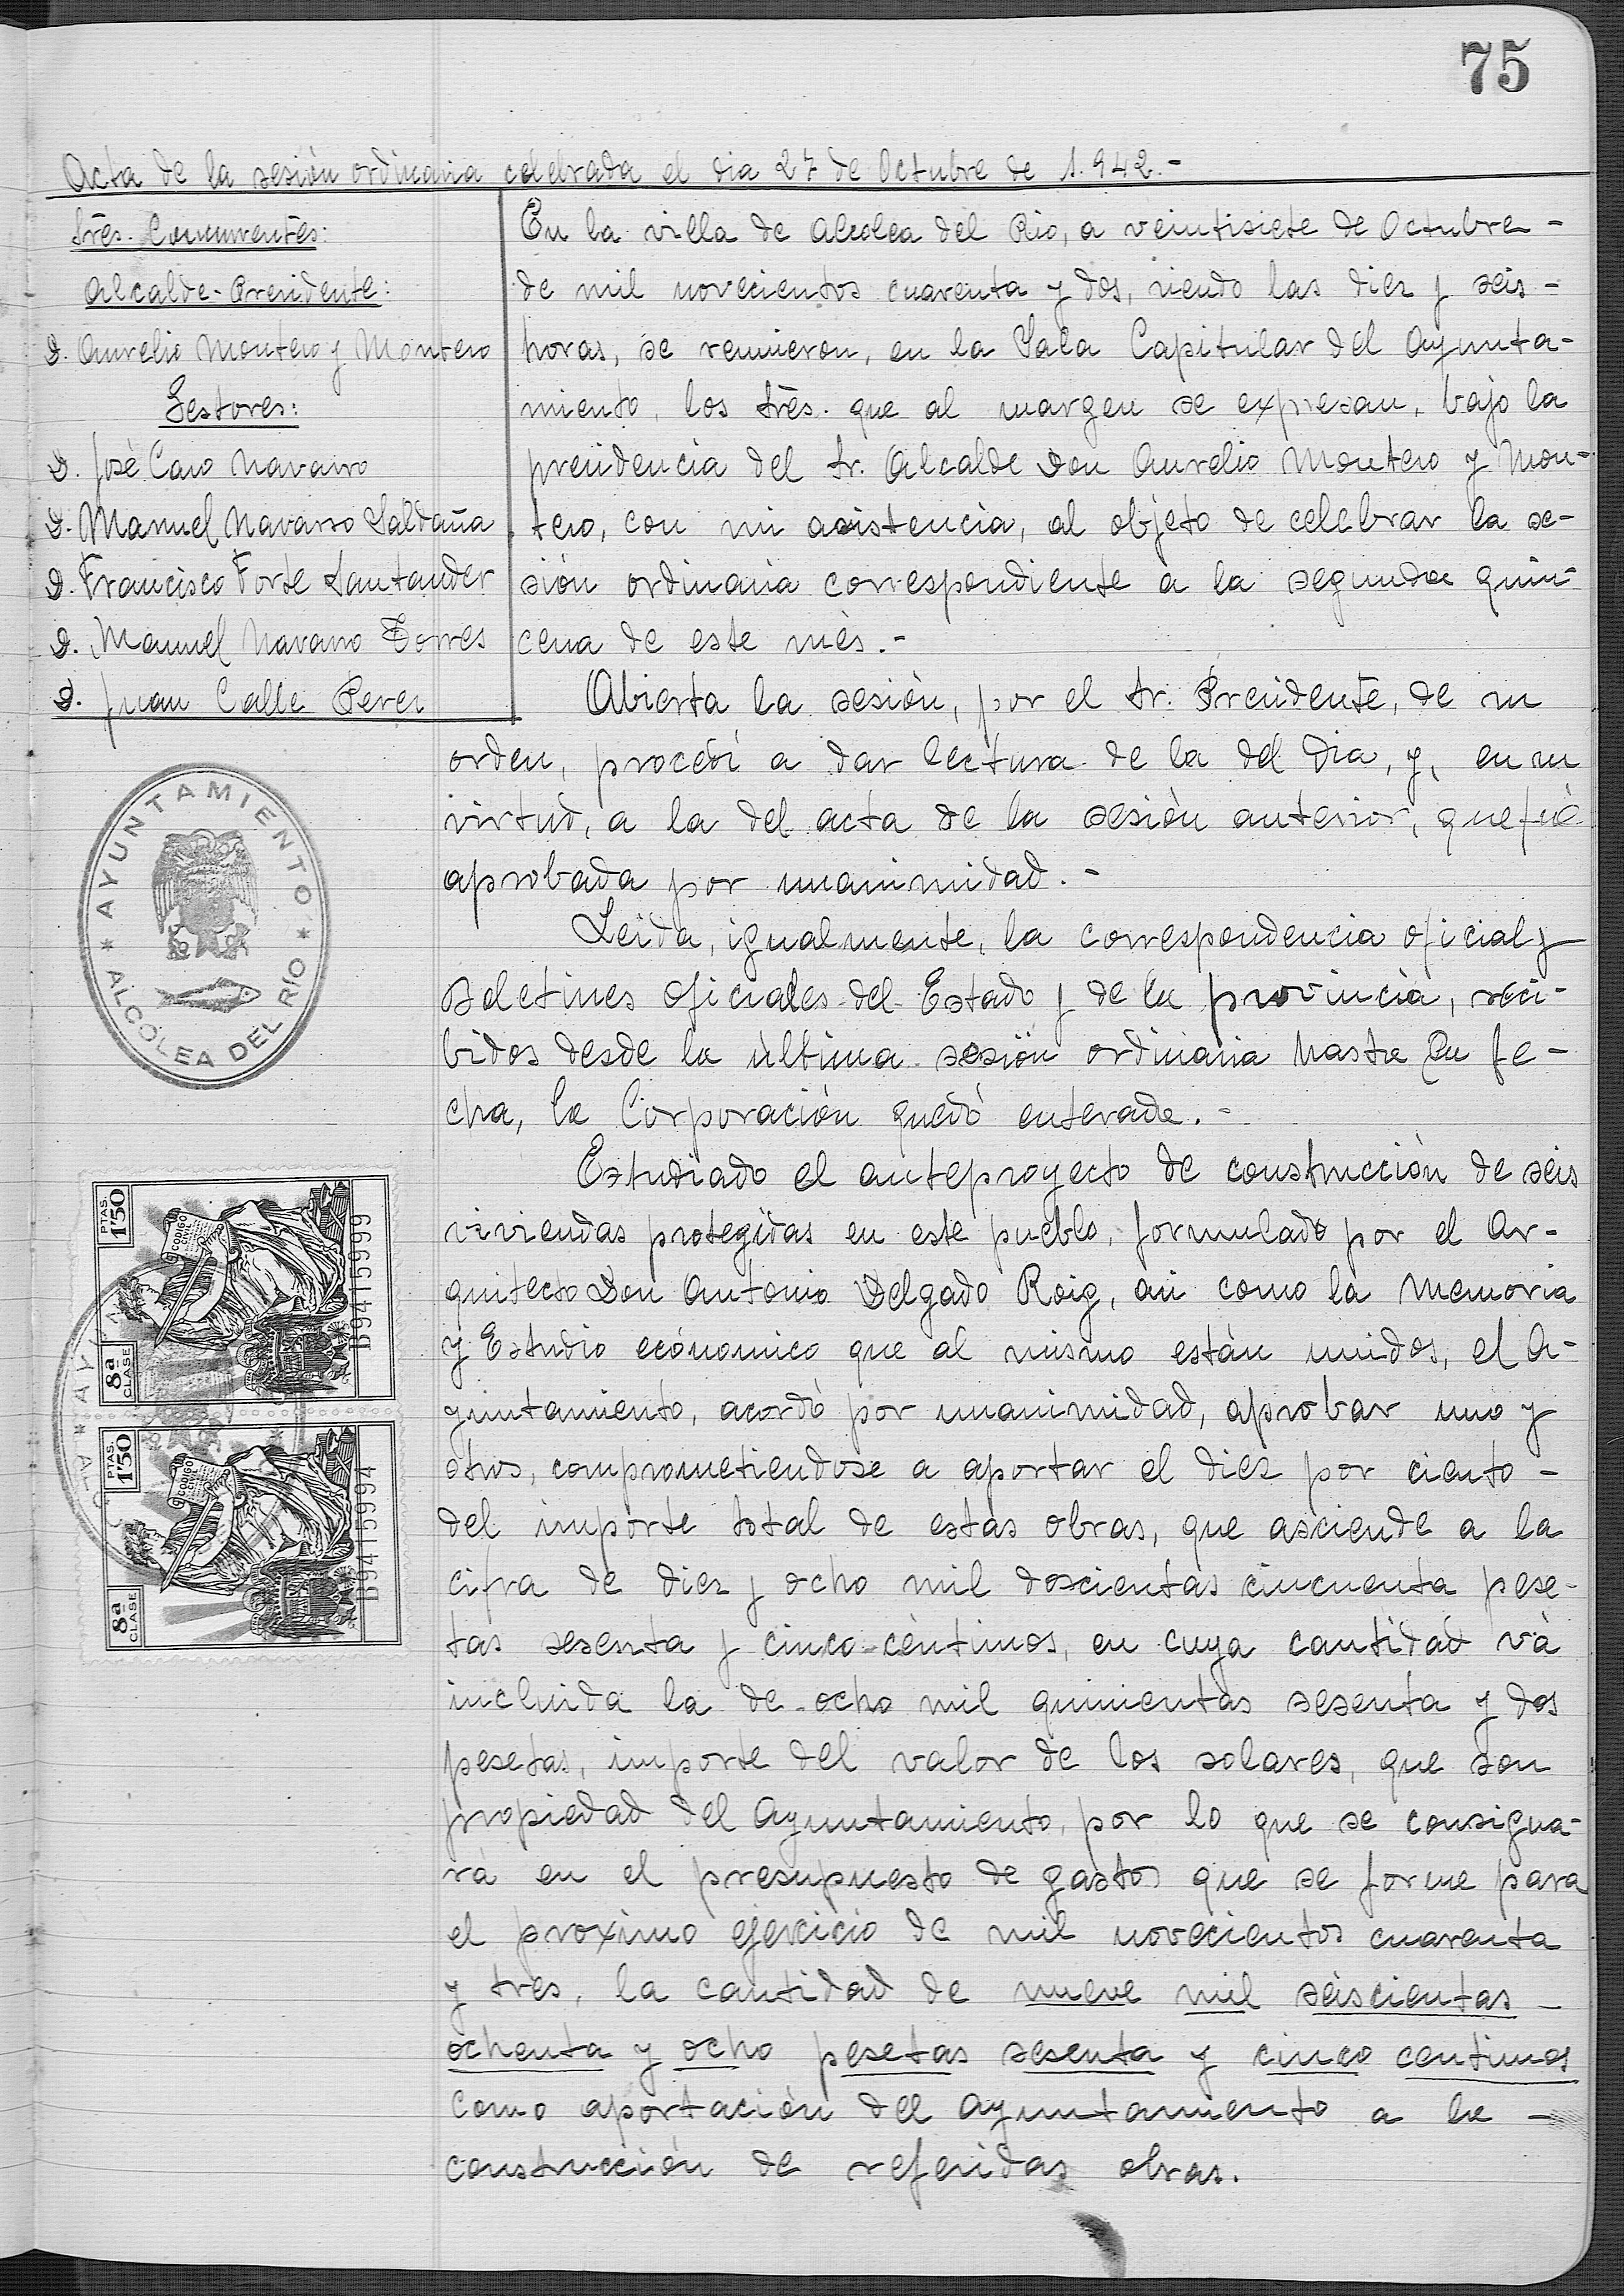 75
Acta de la sesión ordinaria celebrada el dia 27 de Octubre de 1.942.-
Srès. Concurrentes:
Alcalde-Presidente:
D. Aurelio Montero y Montero
Gestores:
D. José Caro Navarro
D. Manuel Navarro Saldaña
D. Francisco Forte Santander
D. Manuel Navarro Torres
D. Juan Calle Perez
En la villa de Alcolea del Rio, a veintisiete de Octubre -
de mil novecientos cuarenta y dos, siendo las diez y seis -
horas, se reunieron, en la Sala Capitular del Ayunta-
miento, los Srès. que al margen se expresan, bajo la
presidencia del Sr. Alcalde Don Aurelio Montero y Mon-
tero, con mi asistencia, al objeto de celebrar la se-
sión ordinaria correspondiente à la segunda quin-
cena de este mès.-
Abierta la sesiòn, por el Sr. Presidente, de su
orden, procedí a dar lectura de la del Dia, y, en su
virtud, a la del acta de la sesiòn anterior, que fuè
aprobada por unanimidad.-
Leida, igualmente, la correspondencia oficial y
Boletines Oficiales del Estado y de la provincia, reci-
bidos desde la ùltima sesiòn ordinaria hasta la fe-
cha, la Corporaciòn quedó enterada.-
Estudiado el anteproyecto de construcciòn de seis
viviendas protegidas en este pueblo, formulado por el Ar-
quitecto Don Antonio Delgado Roig, asi como la Memoria
y Estudio ecònomico que al mismo estàn unidos, el A-
yuntamiento, acordó por unanimidad, aprobar uno y
otros, comprometiendose a aportar el diez por ciento -
del importe total de estas obras, que asciende a la
cifra de diez y ocho mil doscientas cincuenta pese-
tas sesenta y cinco cèntimos, en cuya cantidad và
incluida la de ocho mil quinientas sesenta y dos
pesetas, importe del valor de los solares, que son
propiedad del Ayuntamiento, por lo que se consigna-
rà en el presupuesto de gastos que se forme para
el proximo ejercicio de mil novecientos cuarenta
y tres, la cantidad de nueve mil seiscientas -
ochenta y ocho pesetas sesenta y cinco centimos
como aportaciòn del Ayuntamiento a la -
construcción de referidas obras.
* AYUNTAMIENTO *
ALCOLEA DEL RIO
PTAS.
1'50
CODIGO CIVIL
8ª
CLASE
B9415999
PTAS.
1'50
CODIGO CIVIL
8ª
CLASE
B9415994